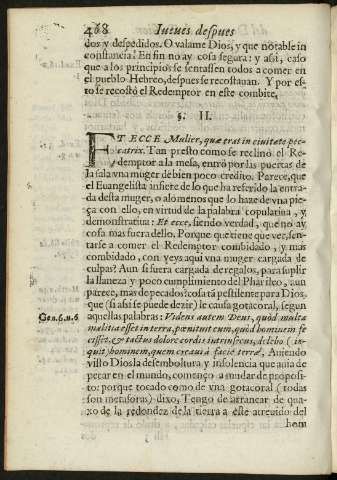 468 Iueues despues
dos y despedidos. O valame Dios, y que notable in
constancia! En fin no ay cosa segura: y assi, caso
que a los principios se sentassen todos a comer en
el pueblo Hebreo, despues se recostauan. Y por es-
to se recostò el Redemptor en este combite.
§. II.
ET ECCE Mulier, quæ erat in ciuitate pec-
catrix. Tan presto como se reclinò el Re-
demptor a la mesa, entrò por las puertas de
la sala vna muger de bien poco credito. Parece, que
el Euangelista infiere de lo que ha referido la entra-
da desta muger, o alomenos que lo haze de vna pie-
ça con ello, en virtud de la palabra copulatiua, y
demonstratiua: Et ecce, siendo verdad, que no ay
cosa mas fuera dello. Porque que tiene que ver, sen-
tarse a comer el Redemptor combidado, y mas
combidado, con veys aqui vna muger cargada de
culpas? Aun si fuera cargada de regalos, para suplir
la llaneza y poco cumplimiento del Phariseo, aun
parece, mas de pecados? cosa tā pestilente para Dios,
que (si assi se puede dezir) le causa gotacoral, segun
Gen. 6. n. 6 aquellas palabras: Videns autem Deus, quòd multa
malitia esset in terra, pœnituit eum, quòd hominem fe
cisset, & tactus dolore cordis intrinsecus, delebo (in-
quit) hominem, quem creaui à facie terræ, Auiendo
visto Dios la desemboltura y insolencia que auia de
peccar en el mundo, començo a mudar de proposi-
to: porque tocado como de vna gotacoral (todas
son metaforas) dixo, Tengo de arrancar de qua-
xo de la redondez de la tierra a este atreuido del
hom